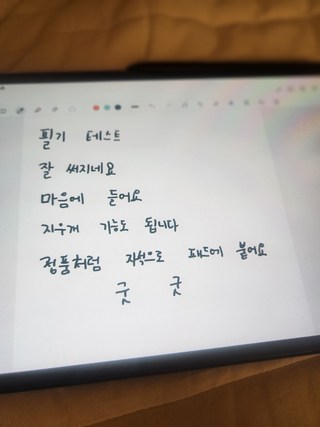 필기 테스트
잘 써지네요
마음에 들어요
지우개 기능도 됩니다
정품처럼 자석으로 패드에 붙어요
굿 굿